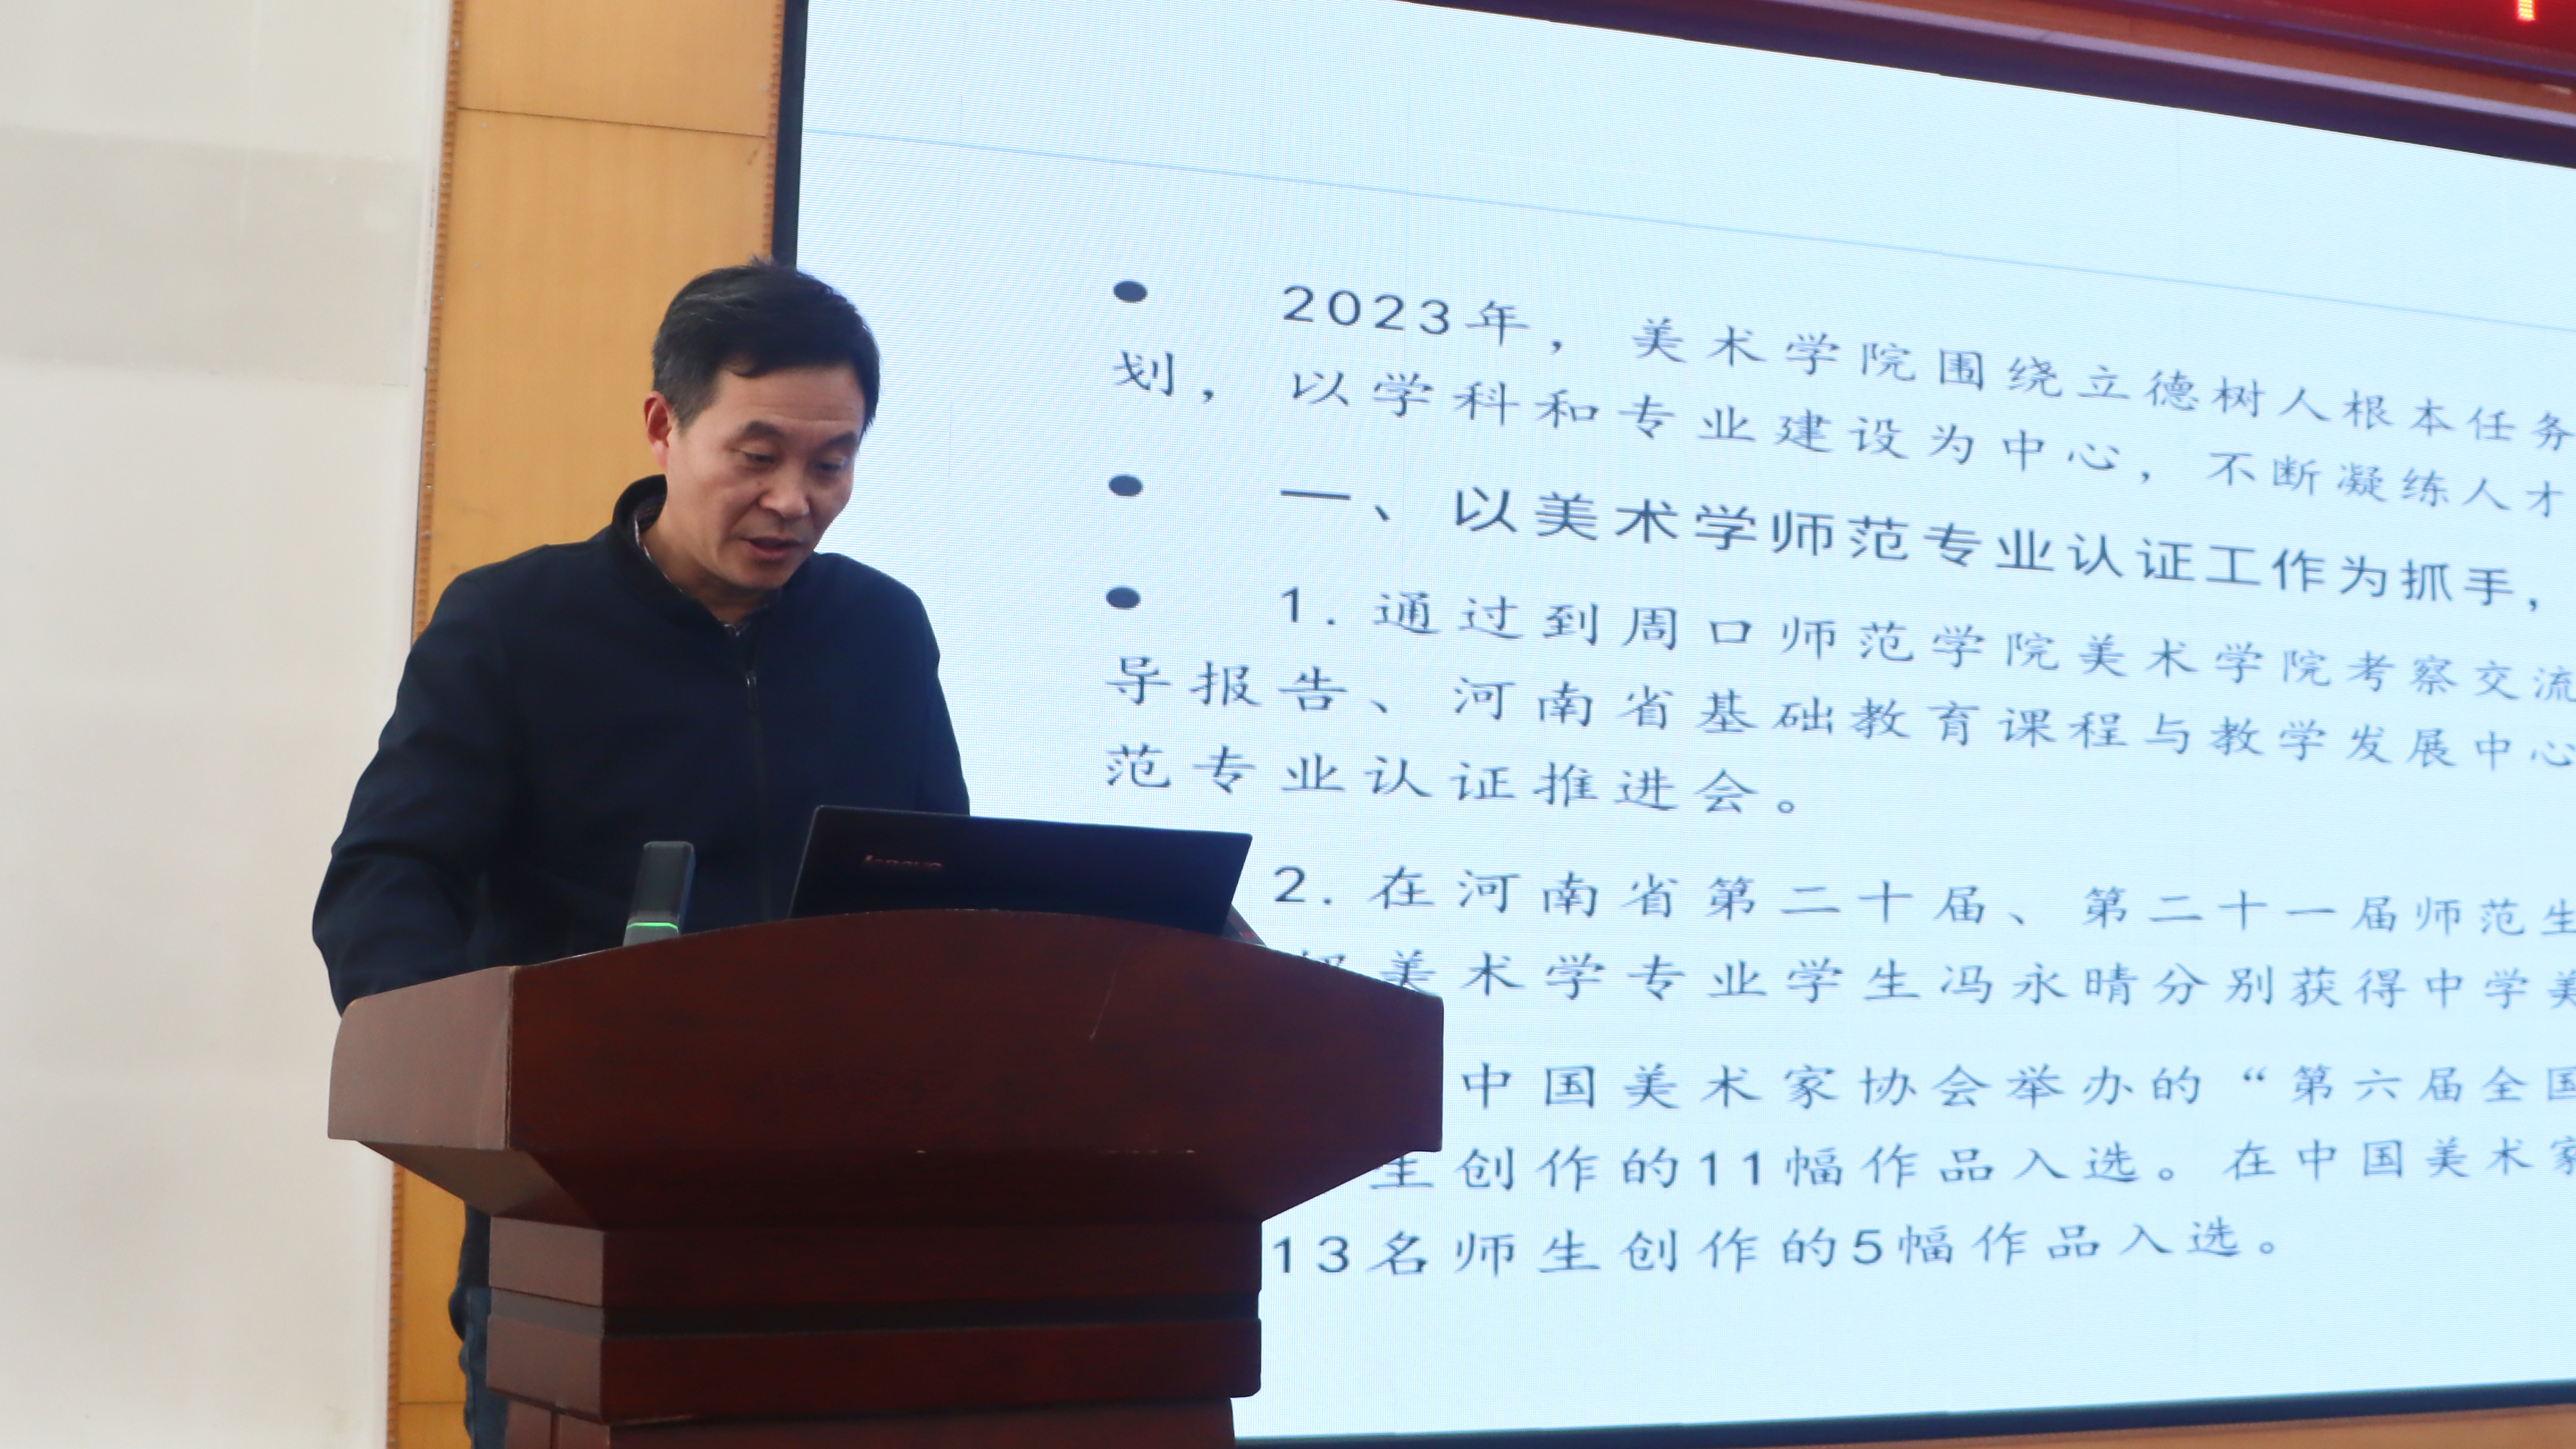 2023年，美术学院围绕立德树人根本任务
划，以学科和专业建设为中心，不断凝练人才
一、以美术学师范专业认证工作为抓手，
1.通过到周口师范学院美术学院考察交流
导报告、河南省基础教育课程与教学发展中心
范专业认证推进会。
2.在河南省第二十届、第二十一届师范生
美术学专业学生冯永晴分别获得中学美
中国美术家协会举办的“第六届全国
生创作的11幅作品入选。在中国美术家
13名师生创作的5幅作品入选。
lenovo